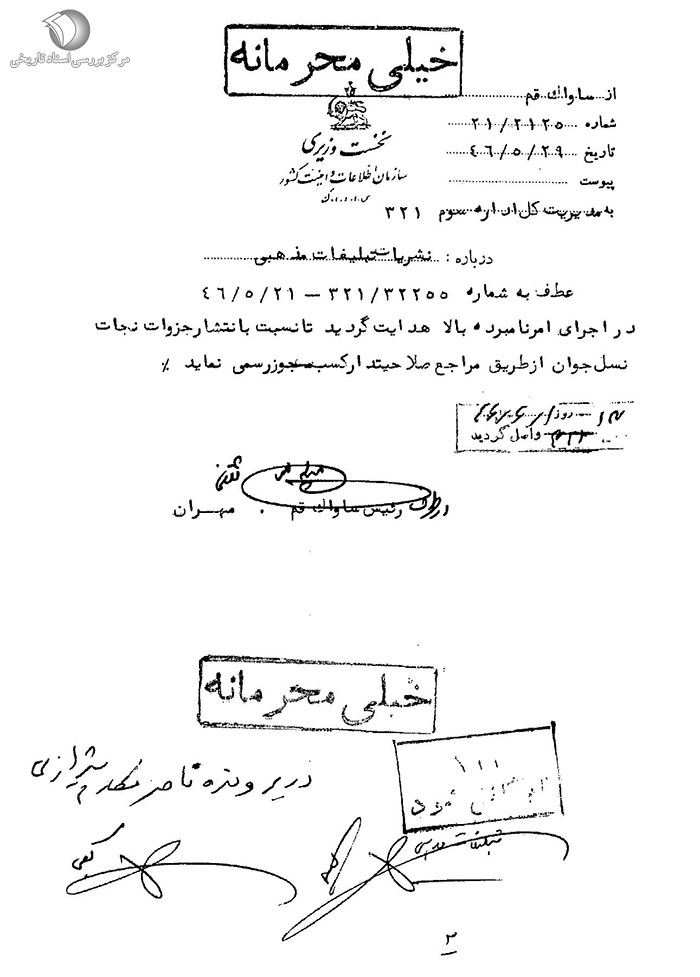 مرکز بررسی اسناد تاریخی
خیلی محرمانه
از ساواک قم
شماره ۲۱/۲۱۲۵
تاریخ ۴۶/۵/۲۹
پیوست
نخست وزیری
سازمان اطلاعات و امنیت کشور
س.ا.و.ا.ک
به مدیریت کل اداره سوم ۳۲۱
درباره : نشریات تبلیغات مذهبی
عطف به شماره ۳۲۱/۳۲۲۵۵ – ۴۶/۵/۲۱
در اجرای امر نامبرده بالا هدایت گردید تا نسبت بانتشار جزوات نجات
نسل جوان از طریق مراجع صلاحیتدار کسب مجوز رسمی نماید ٪
روز
واصل گردید
رئیس ساواک قم . مهران
خیلی محرمانه
در پرونده ناصر مکارم شیرازی
بایگانی شود
تبلیغات مذهبی
۲